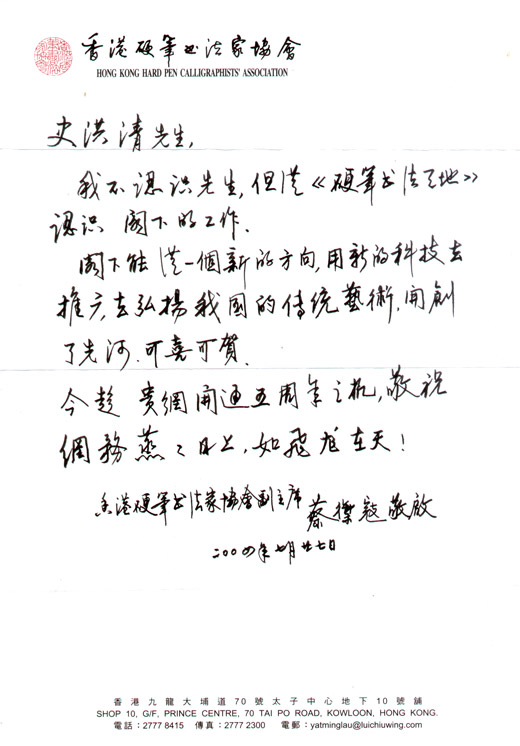 香港硬筆书法家協會
HONG KONG HARD PEN CALLIGRAPHISTS' ASSOCIATION
史洪清先生,
我不認识先生,但從《硬筆书法天地》
認识 阁下的工作.
阁下能從一個新的方向,用新的科技去
推广,去弘揚我國的傳统藝術.開創
了先河.可喜可賀.
今趁 貴網開通五周年之机,敬祝
網務蒸々日上,如飛龙在天!
香港硬筆书法家協會副主席
蔡 敬啟
二〇〇四年七月廿七日
香港九龍大埔道70號太子中心地下10號舖
SHOP 10, G/F, PRINCE CENTRE, 70 TAI PO ROAD, KOWLOON, HONG KONG.
電話:2777 8415 傳真:2777 2300 電郵:yatminglau@luichiuwing.com